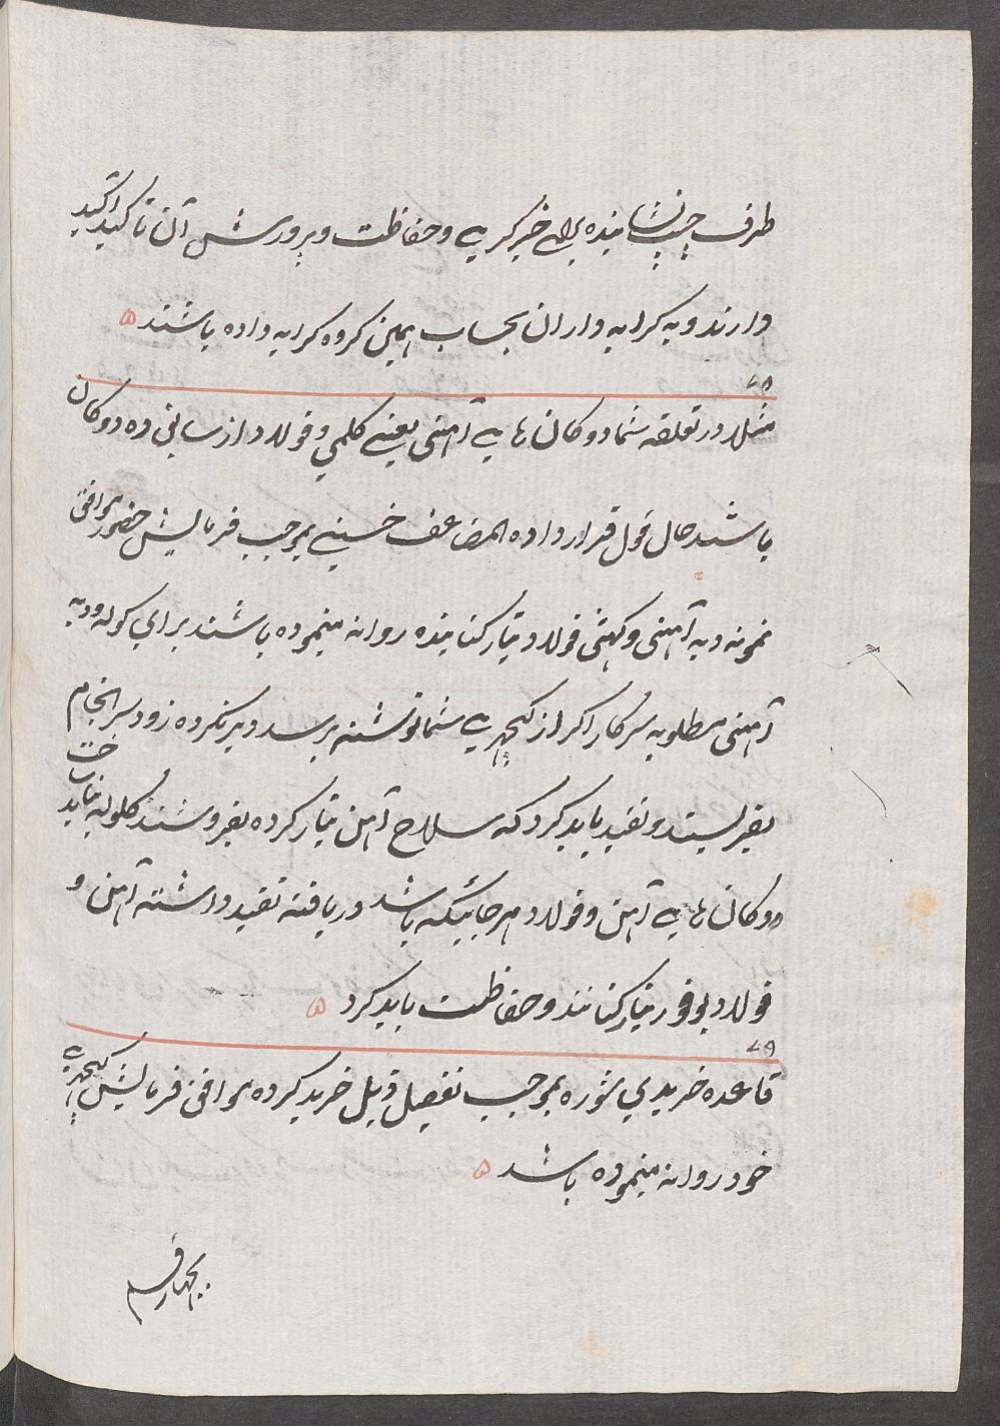 طرف چپ نشانیده برای خبرگیری و حفاظت و پرورش آن تاکید اکید
دارند و به کرایه داران بحساب همین کروه کرایه داده باشند ۵
۷۸
مثلا در تعلقه شما دوکان های آهنی یعنی کلمی و فولاد از سابق ده دوکان
باشند حال قول قرار داده المضاعف بموجب فرمایش حضور موافق
نمونه دیه آهنی و فولاد تیار کنانیده روانه مینموده باشند برای کوله و دیه
آهنی مطلوبه سرکار اگر از کچهری شما نوشته برسد دیر نکرده زود سرانجام
بفریسند و تقید باید کرد که سلاح آهن تیار کرده بفروشند کلوله نباید ساخت
دوکان های آهن و فولاد هر جائیکه باشد دریافته تقید داشته آهن و
فولاد بوفور تیار کنانند و حفاظت باید کرد ۵
۷۹
قاعده خریدی شوره بموجب تفصیل ذیل خرید کرده موافق فرمایش کچهری
خود روانه مینموده باشد ۵
بچهار قسم